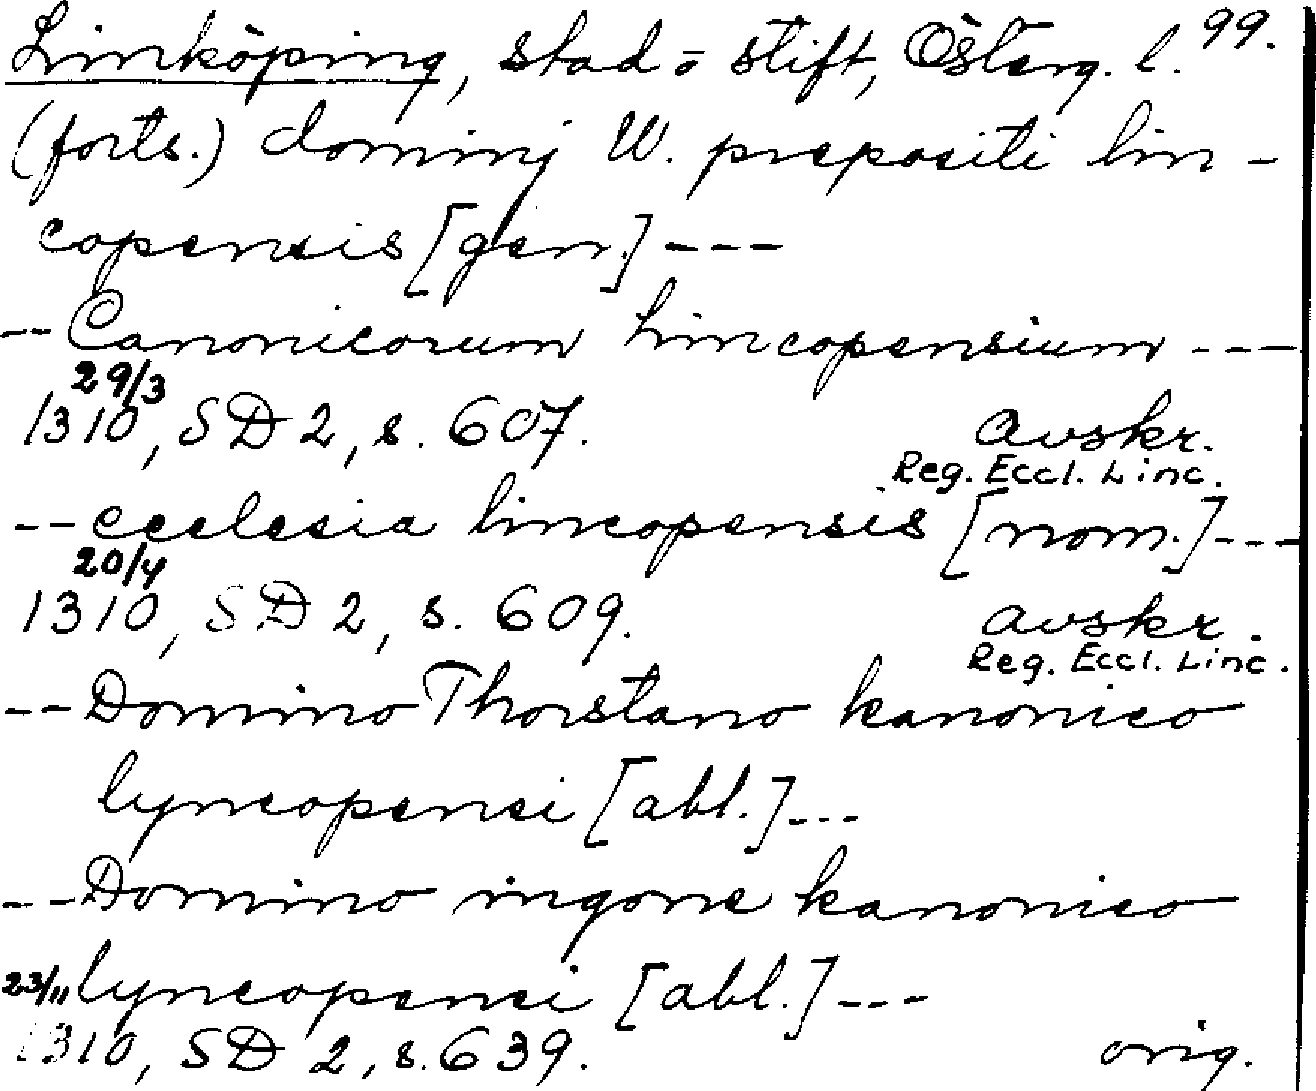 Linköping, stad o stift, Österg. l. 99.
(forts.) dominj W. prepositi lin-
copensis [gen.] ---
-- Canonicorum Lincopensium ---
29/3
1310, SD 2, s. 607. Avskr.
Reg. Eccl. Linc.
-- ecclesia lincopensis [nom.] ---
20/4
1310, SD 2, s. 609. Avskr.
Reg. Eccl. Linc.
-- Domino Thorstano kanonico
lyncopensi [abl.] ---
-- Domino ingone kanonico
23/11 lyncopensi [abl.] ---
1310, SD 2, s. 639. orig.